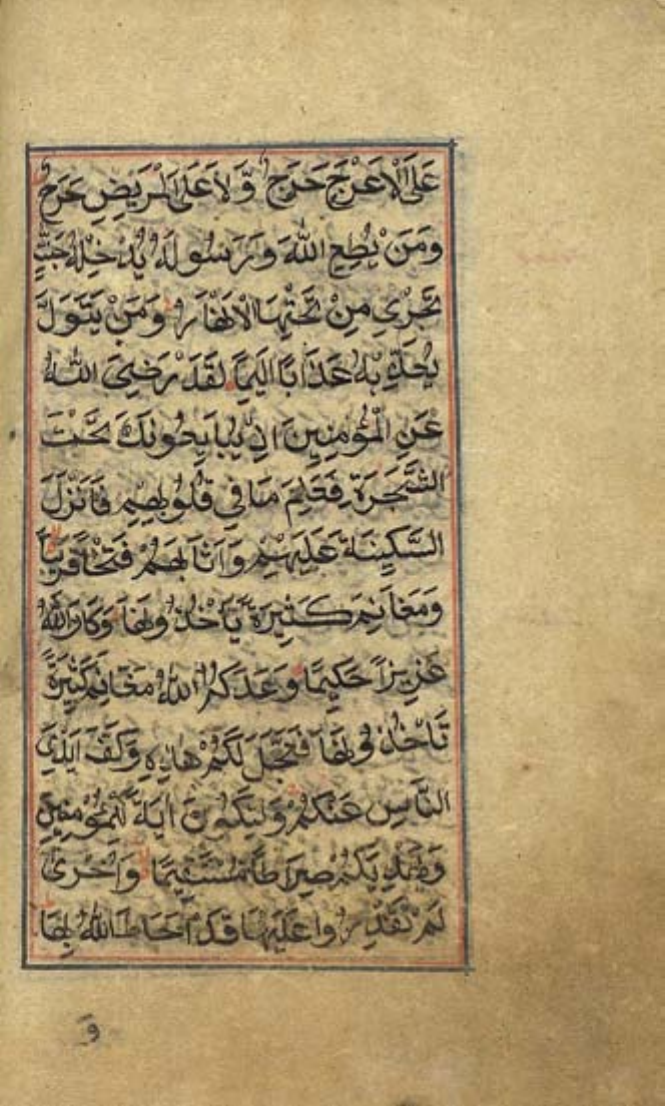 عَلَى الْاَعْرَجِ حَرَجٌ وَّلَا عَلَى الْمَرِيْضِ حَرَجٌ
وَمَنْ يُطِعِ اللّٰهَ وَرَسُولَهُ يُدْخِلْهُ جَنّٰتٍ
تَجْرِي مِنْ تَحْتِهَا الْاَنْهَارُ وَمَنْ يَتَوَلَّ
يُعَذِّبْهُ عَذَابًا اَلِيمًا لَقَدْ رَضِيَ اللّٰهُ
عَنِ الْمُؤْمِنِينَ اِذْ يُبَايِعُونَكَ تَحْتَ
الشَّجَرَةِ فَعَلِمَ مَا فِي قُلُوبِهِمْ فَاَنْزَلَ
السَّكِينَةَ عَلَيْهِمْ وَاَثَابَهُمْ فَتْحًا قَرِيبًا
وَمَغَانِمَ كَثِيرَةً يَّاْخُذُونَهَا وَكَانَ اللّٰهُ
عَزِيزًا حَكِيمًا وَعَدَكُمُ اللّٰهُ مَغَانِمَ كَثِيرَةً
تَاْخُذُونَهَا فَعَجَّلَ لَكُمْ هٰذِهِ وَكَفَّ اَيْدِيَ
النَّاسِ عَنْكُمْ وَلِتَكُونَ اٰيَةً لِّلْمُؤْمِنِينَ
وَيَهْدِيَكُمْ صِرَاطًا مُّسْتَقِيمًا وَاُخْرٰى
لَمْ تَقْدِرُوا عَلَيْهَا قَدْ اَحَاطَ اللّٰهُ بِهَا
و